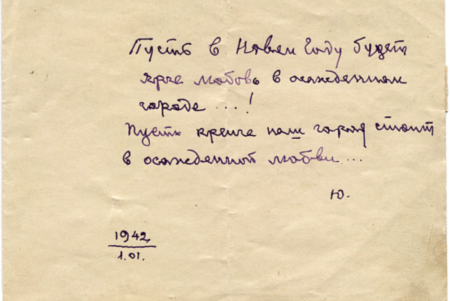 Пусть в Новом Году будет
ярче любовь в осажденном
городе ...!
Пусть крепче наш город стоит
в осажденной любви...
Ю.
1942
1.01.